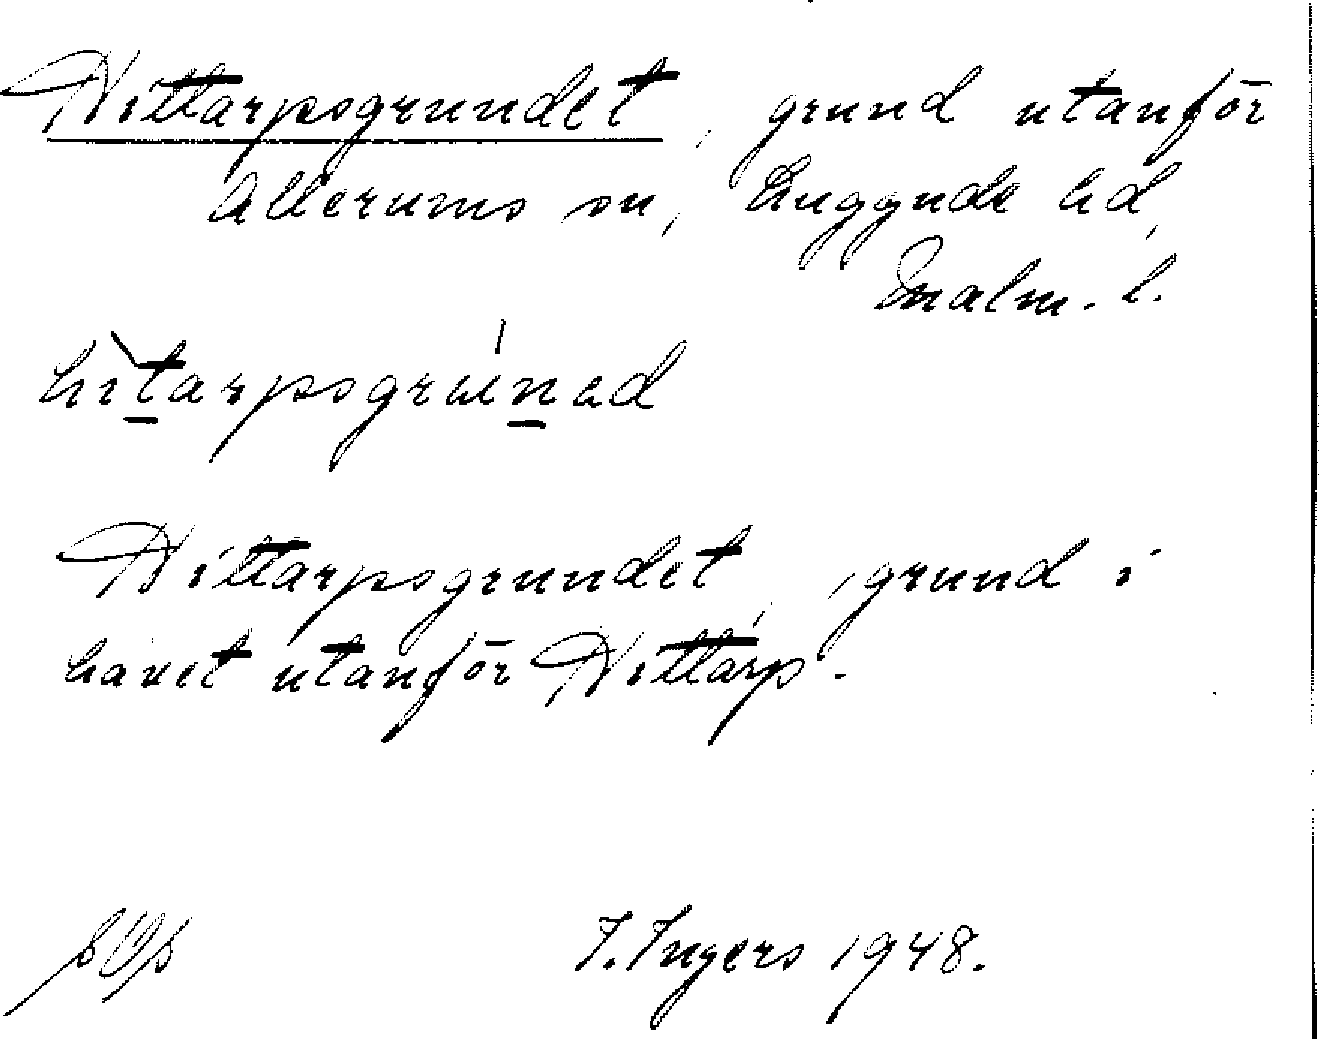 Hittarpsgrundet, grund utanför
Allerums sn, Luggude hd,
Malm. l.
hìtarpsgrúnəd
Hittarpsgrundet, grund i
havet utanför Hittarp.
I. Ingers 1948.